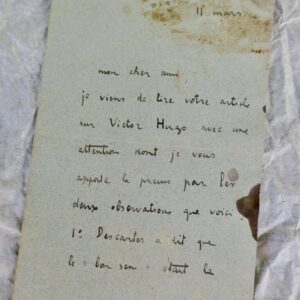 15 mars
mon cher ami
je viens de lire votre article
sur Victor Hugo avec une
attention dont je vous
apporte la preuve par les
deux observations que voici
1º Descartes a dit que
le "bon sens" était la